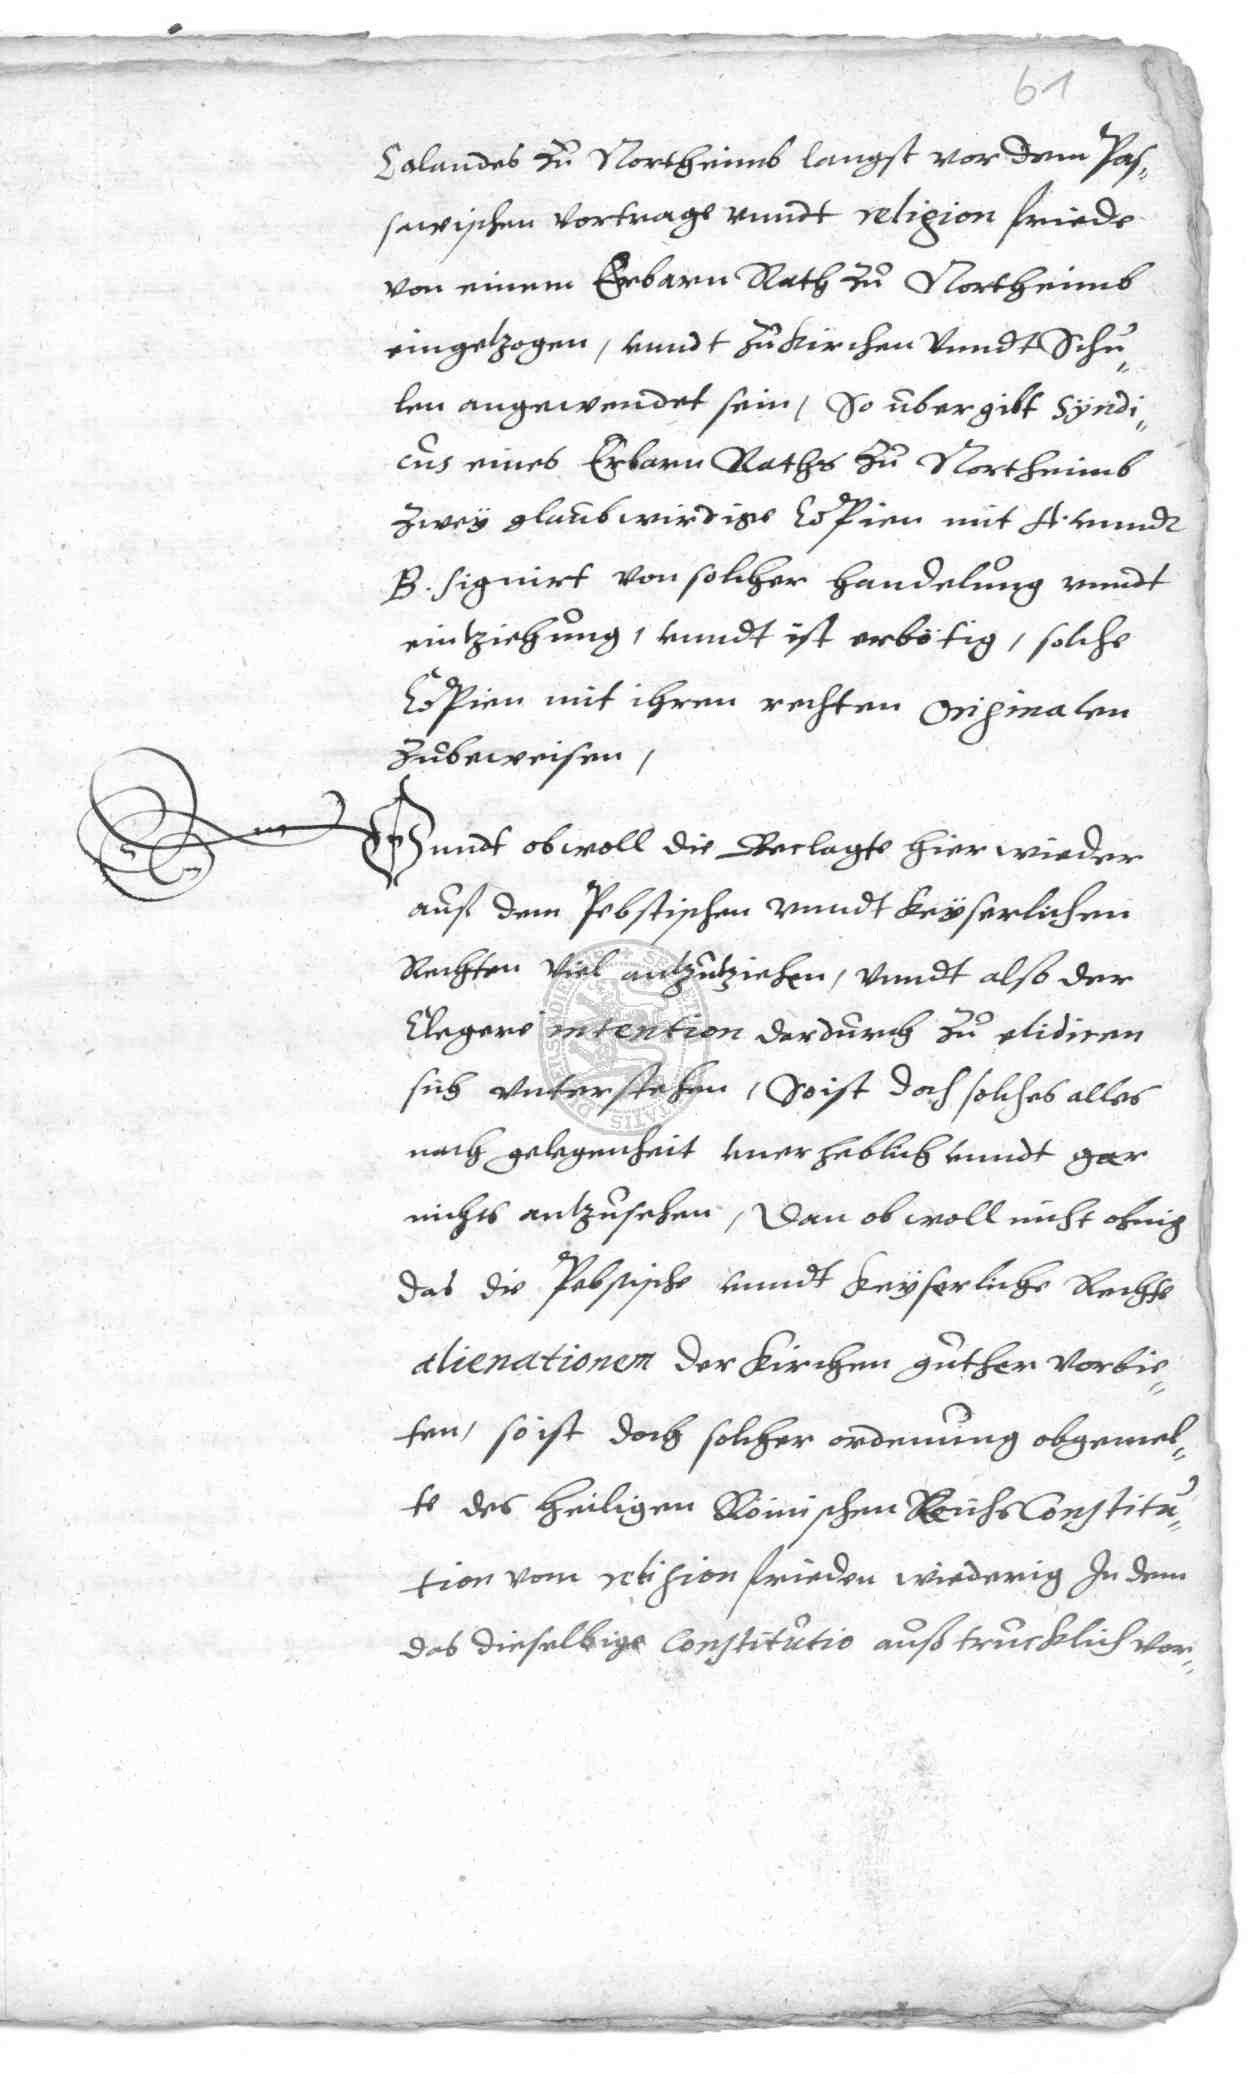 61
Calandes zu Northeimb langst vor dem Pas-
sawischen vortrage vnndt religion friede
von einem Erbarn Rath zu Northeimb
eingetzogen, vnndt zu Kirchen vnndt Schu-
len angewendet sein, So ubergibt Syndi-
cus eines Erbarn Raths zu Northeimb
zwey glaubwirdige Copien mit A. vnndt
B. signirt von solcher handelung vnndt
eintziehung, vnndt ist erbötig, solche
Copien mit ihren rechten Originalen
zubeweisen,
Vnndt obwoll die Beclagte hierwieder
auß dem Pebstischen vnndt Keyserlichen
Rechten viel antzutziehen, vnndt also der
Clegere intention dardurch zu elidiren
sich vnterstehen, So ist doch solches alles
nach gelegenheit vnerheblich vnndt gar
nichts antzusehen, Dan obwoll nicht ohnig
das die Pebstische vnndt Keyserliche Rechte
alienationem der Kirchen guther vorbie-
ten, so ist doch solcher ordenung obgemel-
te des heiligen Römischen Reichs Constitu-
tion vom religion frieden wiederig In dem
das dieselbige Constitutio außtrucklich vor-